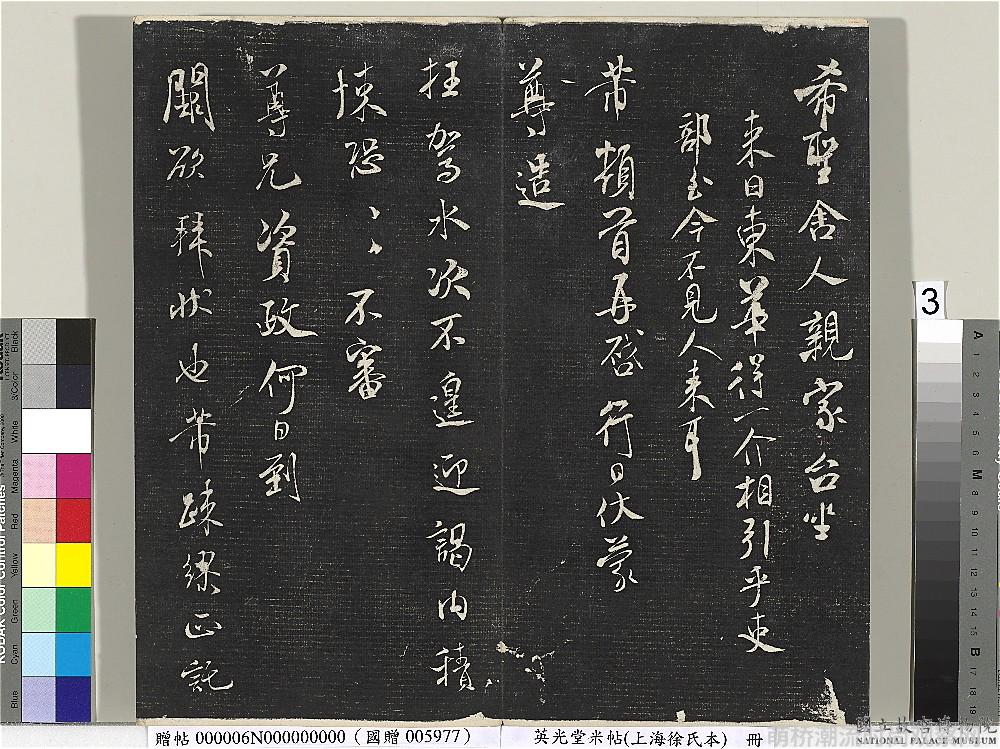 希聖舍人親家台坐
来日東華得一介相引乎吏
部至今不見人来耳
芾頓首再啓行日伏蒙
尊造
枉駕水次不遑迎謁内積
悚恐〻〻不審
尊兄資政何日到
闕欲拜狀也芾疎繆正託
3
贈帖 000006N000000000 (國贈 005977)
英光堂米帖(上海徐氏本) 冊
國立故宮博物院
NATIONAL PALACE MUSEUM
KODAK Color Control Patches
Blue
Cyan
Green
Yellow
Red
Magenta
White
3/Color
Black
A
1
2
3
4
5
6
M
8
9
10
11
12
13
14
15
B
17
18
19